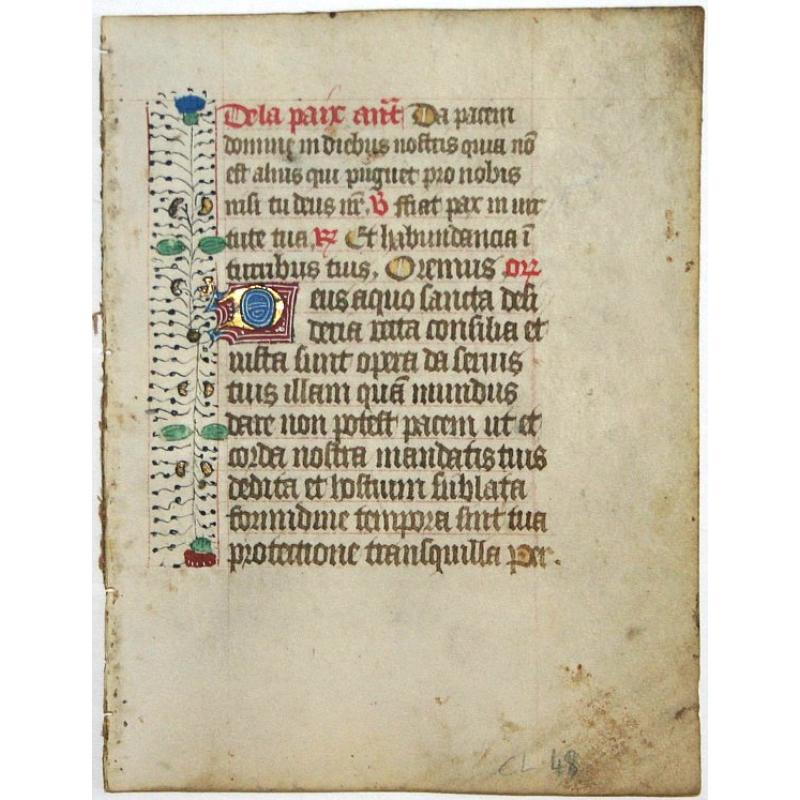 De la paix ant̃ Da pacem
domine in diebus nostris quia nō
est alius qui pugnet pro nobis
nisi tu deus nr̃. ℣ ffiat pax in uir
tute tua. ℟ Et habundancia ī
turribus tuis. Oremus orꝛ
Deus a quo sancta desi
deria recta consilia et
iusta sunt opera da seruis
tuis illam quā mundus
dare non potest pacem ut et
corda nostra mandatis tuis
dedita et hostium sublata
formidine tempora sint tua
protectione tranquilla Per.
CL 48